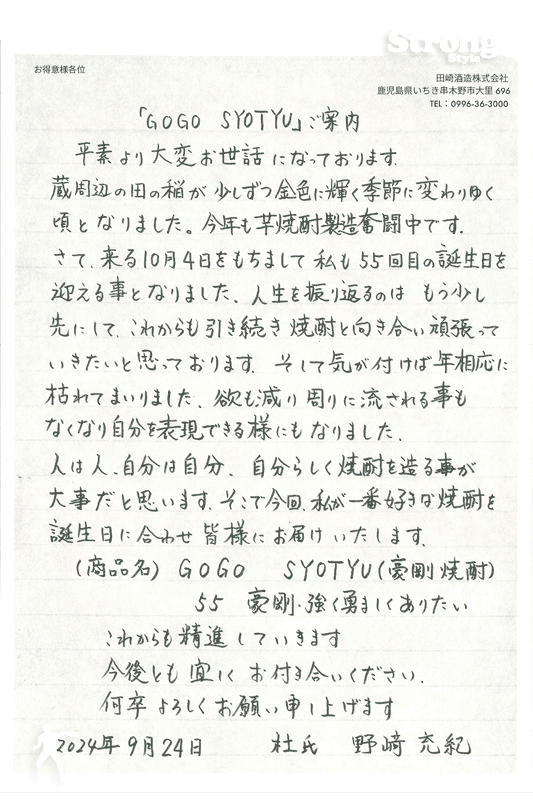 Strong
Style
お得意様各位
田崎酒造株式会社
鹿児島県いちき串木野市大里 696
TEL：0996-36-3000
「GOGO SYOTYU」ご案内
平素より大変お世話になっております。
蔵周辺の田の稲が少しずつ金色に輝く季節に変わりゆく
頃となりました。今年も芋焼酎製造奮闘中です。
さて、来る10月4日をもちまして私も55回目の誕生日を
迎える事となりました、人生を振り返るのはもう少し
先にして、これからも引き続き焼酎と向き合い頑張って
いきたいと思っております。そして気が付けば年相応に
枯れてまいりました、欲も減り周りに流される事も
なくなり自分を表現できる様にもなりました。
人は人、自分は自分、自分らしく焼酎を造る事が
大事だと思います。そこで今回、私が一番好きな焼酎を
誕生日に合わせ皆様にお届けいたします。
(商品名) GOGO SYOTYU(豪剛焼酎)
55 豪剛・強く勇ましくありたい
これからも精進していきます
今後とも宜しくお付き合いください。
何卒よろしくお願い申し上げます
2024年9月24日 杜氏 野﨑充紀